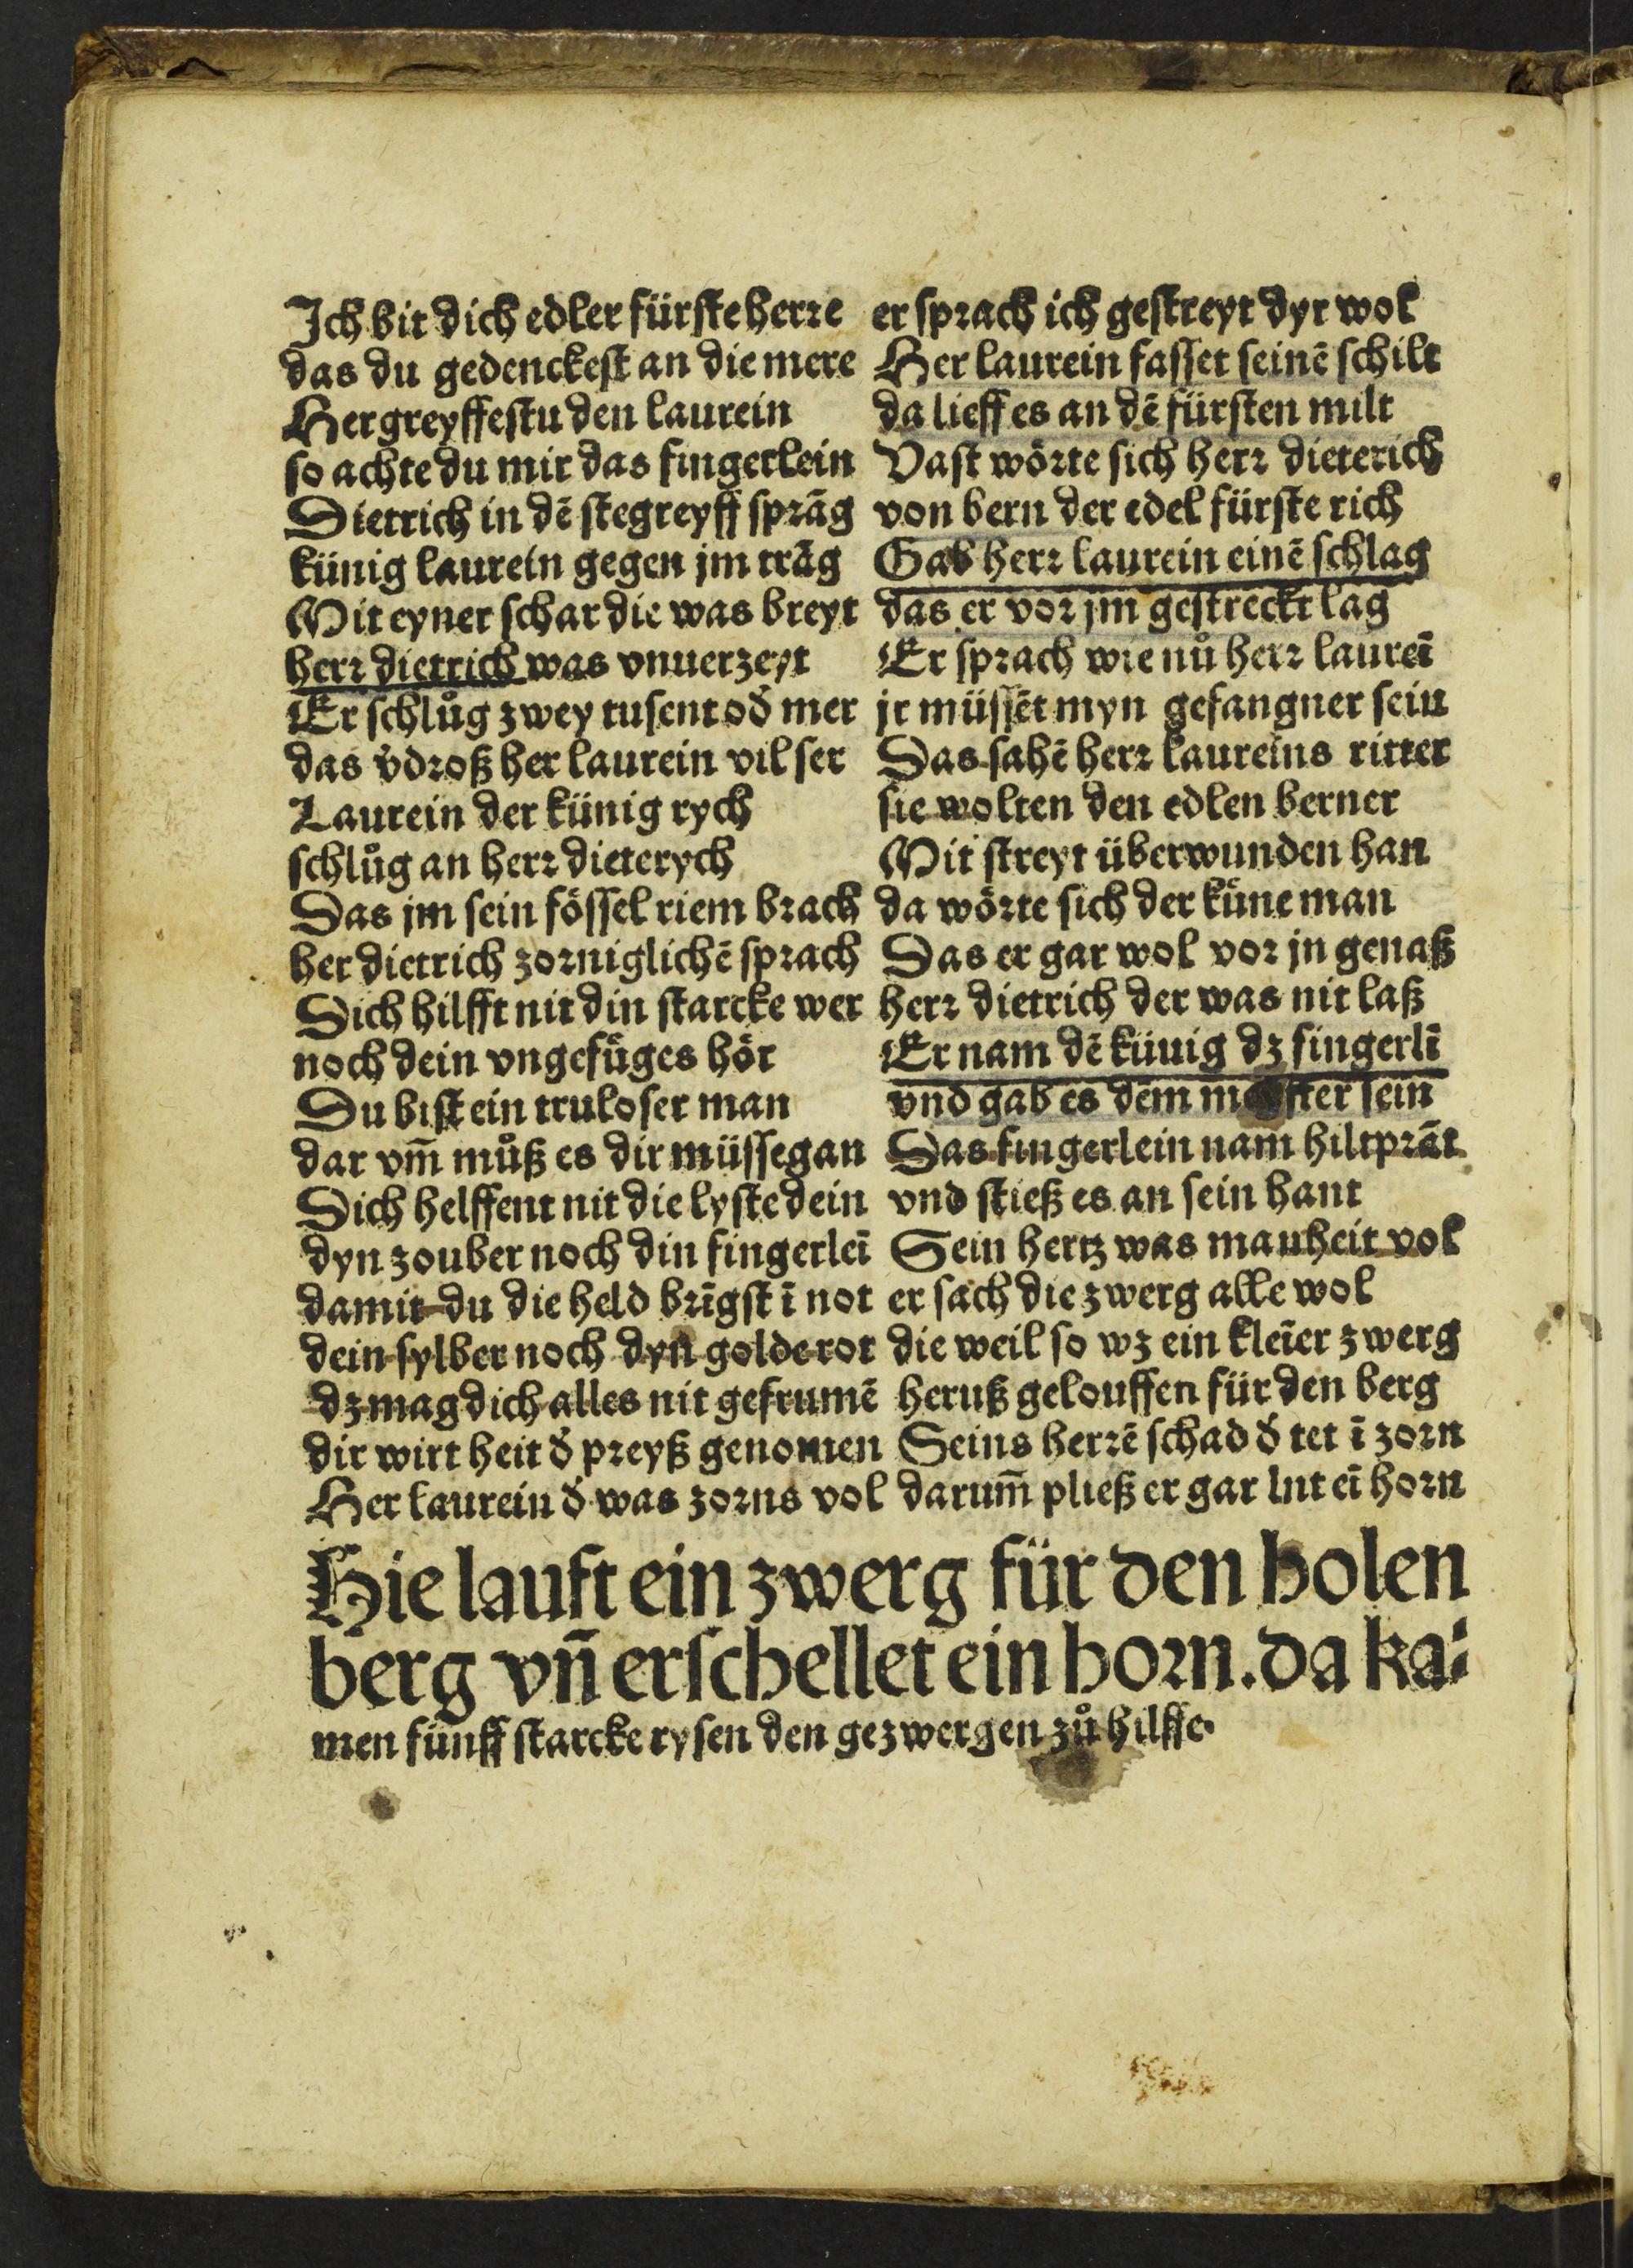 Ich bit dich edler fürste herre
das du gedenckest an die mere
Her greyffestu den laurein
so achte du mir das fingerlein
Dietrich in dē stegreyff sprāg
künig laurein gegen jm trāg
Mit eyner schar die was breyt
herr dietrich was vnuerzeyt
Er schlůg zwey tusent od̕ mer
das v̕droß her laurein vil ser
Laurein der künig rych
schlůg an herr dieterych
Das jm sein fössel riem brach
her dietrich zorniglichē sprach
Dich hilfft nit din starcke wer
noch dein vngefüges hör
Du bist ein truloser man
dar vm̄ můß es dir müssegan
Dich helffent nit die lyste dein
dyn zouber noch din fingerleī
damit du die held brīgst ī not
dein sylber noch dyn golde rot
dz mag dich alles nit gefrumē
dir wirt heit d̕ preyß genomen
Her laurein d̕ was zorns vol
er sprach ich gestreyt dyr wol
Her laurein fasset seinē schilt
da lieff es an dē fürsten milt
Vast wörte sich herr dieterich
von bern der edel fürste rich
Gab herr laurein einē schlag
das er vor jm gestreckt lag
Er sprach wie nů herr laureī
jr müssēt myn gefangner sein
Das sahē herr laureins ritter
sie wolten den edlen berner
Mit streyt überwunden han
da wörte sich der küne man
Das er gar wol vor jn genaß
herr dietrich der was nit laß
Er nam dē küuig dz fingerlī
vnd gab es dem meyster sein
Das fingerlein nam hiltprāt
vnd stieß es an sein hant
Sein hertz was mauheit vol
er sach die zwerg alle wol
die weil so wz ein kleīer zwerg
heruß gelouffen für den berg
Seins herrē schad d̕ tet ī zorn
darum̄ pließ er gar lut eī horn
Hie lauft ein zwerg für den holen
berg vn̄ erschellet ein horn. da ka⸗
men fünff starcke rysen den gezwergen zů hilffe.